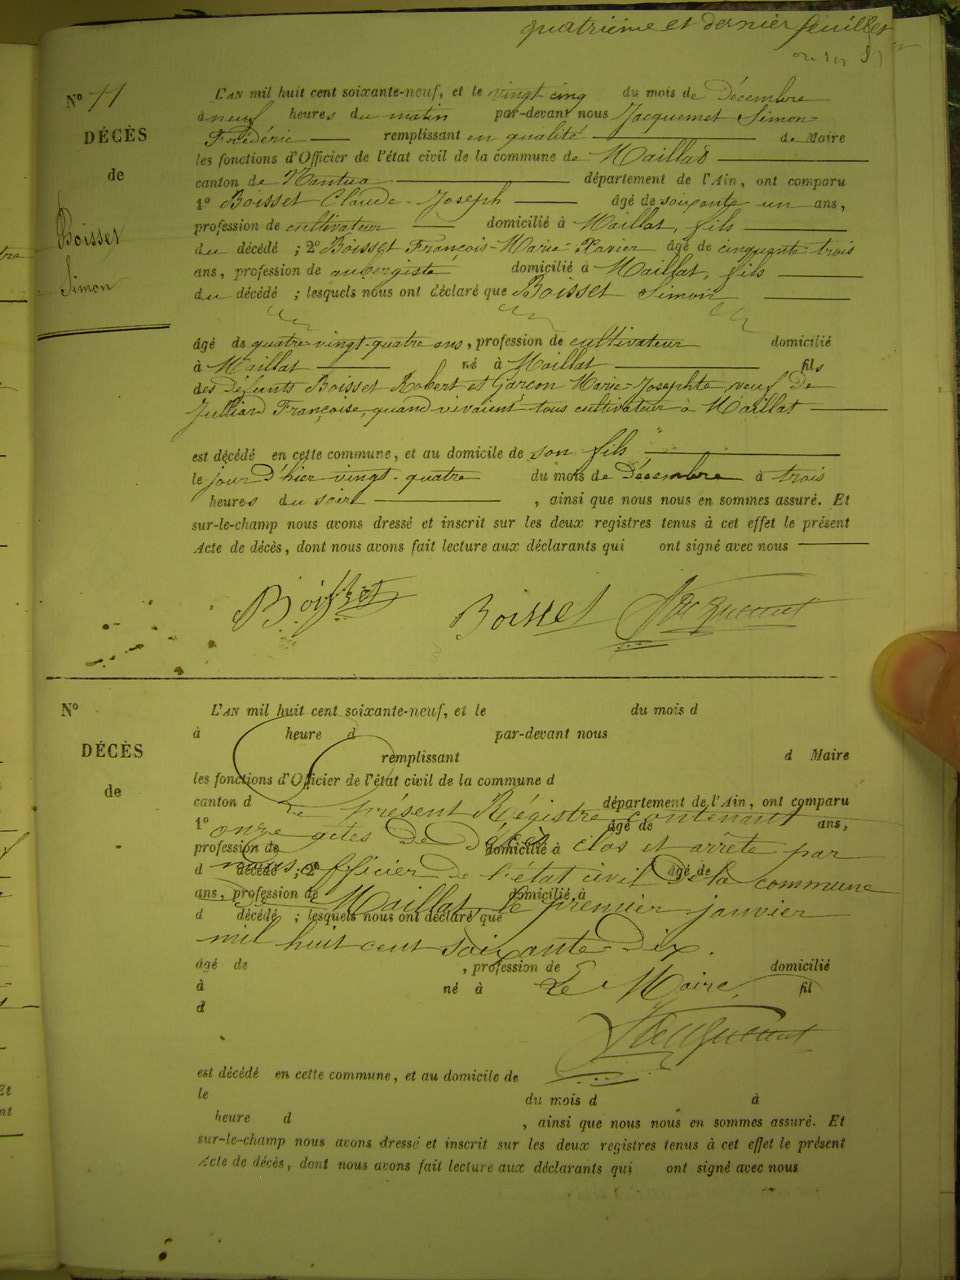 quatrième et dernier feuillet
N° 11
DÉCÈS
de
Boisset
Simon
L'AN mil huit cent soixante-neuf, et le vingt cinq du mois de Décembre
à neuf heures du matin par-devant nous Jacquemet Simon-
Frédéric remplissant en qualité de Maire
les fonctions d'Officier de l'état civil de la commune de Maillat
canton de Nantua département de l'Ain, ont comparu
1° Boisset Claude-Joseph âgé de soixante un ans,
profession de cultivateur domicilié à Maillat, fils
du décédé ; 2° Boisset François-Marie-Xavier âgé de cinquante trois
ans, profession de aubergiste domicilié à Maillat, fils
du décédé ; lesquels nous ont déclaré que Boisset Simon
âgé de quatre-vingt-quatre ans, profession de cultivateur domicilié
à Maillat né à Maillat fils
des défunts Boisset Robert et Garçon Marie-Josephte veuf de
Julliard Françoise, quand vivaient tous cultivateur à Maillat
est décédé en cette commune, et au domicile de son fils
le jour d'hier vingt-quatre du mois de Décembre à trois
heures du soir , ainsi que nous nous en sommes assuré. Et
sur-le-champ nous avons dressé et inscrit sur les deux registres tenus à cet effet le présent
Acte de décès, dont nous avons fait lecture aux déclarants qui ont signé avec nous
Boisset Boisset Jacquemet
N°
DÉCÈS
de
L'AN mil huit cent soixante-neuf, et le du mois d
à heure d par-devant nous
remplissant d Maire
les fonctions d'Officier de l'état civil de la commune d
canton d département de l'Ain, ont comparu
Le présent Régistre contenant
1° âgé de ans,
onze actes de Décès clos et arrêté par
profession de domicilié à
d décédé ; 2° âgé de
nous Officier de l'état civil de la commune
ans, profession de domicilié à
de Maillat, le premier janvier
d décédé ; lesquels nous ont déclaré que
mil huit cent soixante-Dix.
âgé de , profession de domicilié
à né à fil
Le Maire,
d
Jacquemet
est décédé en cette commune, et au domicile de
le du mois d à
heure d , ainsi que nous nous en sommes assuré. Et
sur-le-champ nous avons dressé et inscrit sur les deux registres tenus à cet effet le présent
Acte de décès, dont nous avons fait lecture aux déclarants qui ont signé avec nous